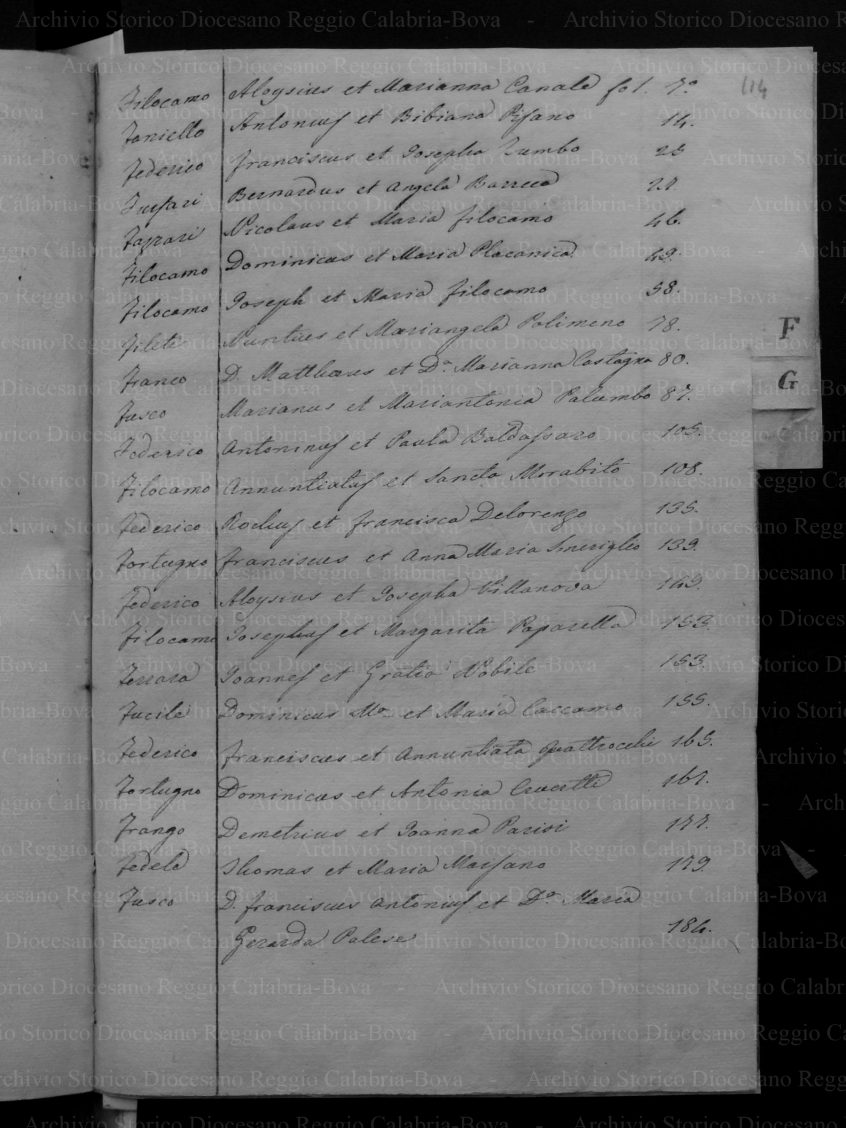 114
Filocamo Aloysius et Marianna Canale fol. 7º
Foniello Antoninus et Bibiana Pisano 14.
Federico Franciscus et Josepha Zumbo 25
Furfari Bernardus et Angela Barreca 27.
Nicolaus et Maria Filocamo 46.
Filocamo Dominicus et Maria Placanica 49.
Filocamo Joseph et Maria Filocamo 58.
Filete Nuntius et Mariangela Polimeno 78.
Franco D. Matthaeus et Dª Marianna Castagna 80.
Fusco Marianus et Mariantonia Palumbo 87.
Federico Antoninus et Paula Baldassaro 105.
Filocamo Annuntiatus et Sancta Morabito 108.
Federico Rochus et Francisca Delorenzo 135.
Fortugno Franciscus et Anna Maria Smeriglio 139.
Federico Aloysius et Josepha Villanova 149.
Filocamo Josephus et Margarita Paparella 153.
Ferrara Joannes et Gratia Nobile 153.
Fucile Dominicus Mª et Maria Caccamo 155.
Federico Franciscus et Annuntiata Quattrocchi 165.
Fortugno Dominicus et Antonia Crucitti 167.
Frango Demetrius et Joanna Parisi 177.
Fedele Thomas et Maria Marsano 179.
Fusco D. Franciscus Antonius et Dª Maria
Gerarda Palese 184.
F
G
Archivio Storico Diocesano Reggio Calabria-Bova